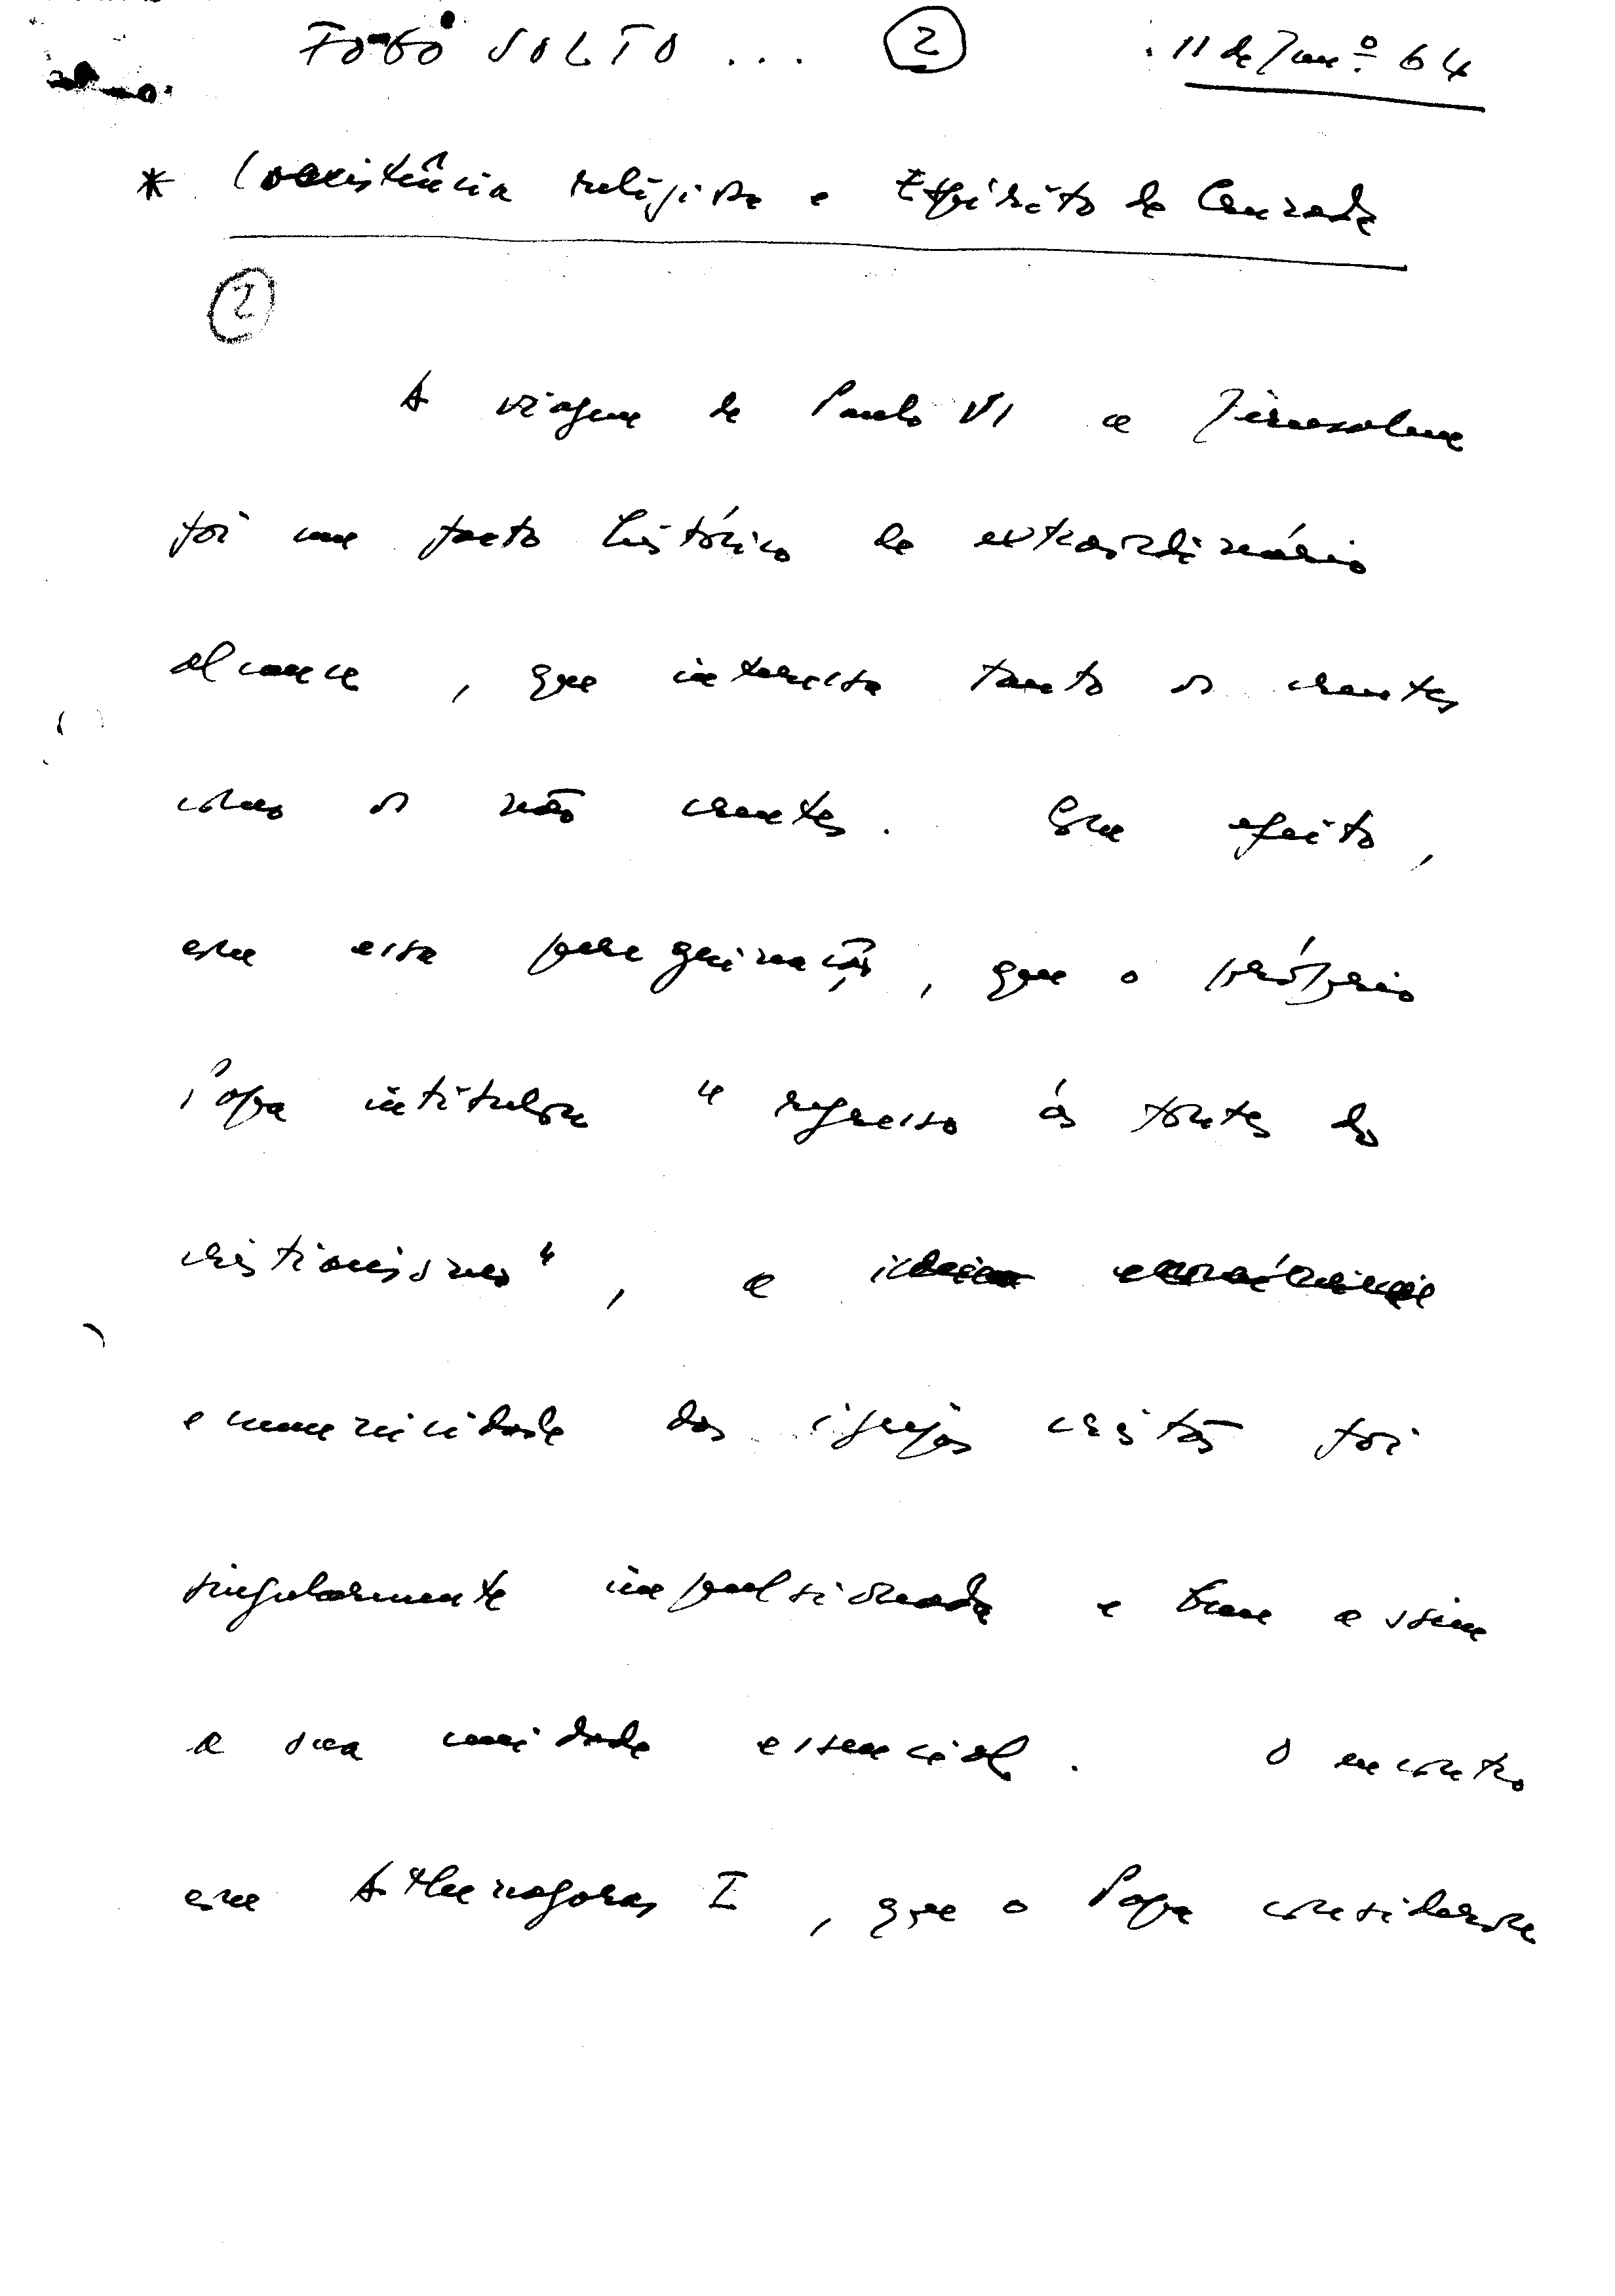 FOGO SOLTO ... 2 11 de Jan.º 64
* Coexistência religiosa e Espírito de Cruzada
2
A viagem de Paulo VI a Jerusalem
foi um facto histórico de extraordinário
alcance, que interessa tanto os crentes
como os não crentes. Com efeito,
com essa peregrinação, que o próprio
Papa intitulou "regresso ás fontes do
cristianismo", a
ecumenicidade das igrejas cristãs foi
singularmente impulsionada e bem assim
a sua unidade essencial. O encontro
com Athenagoras I, que o Papa considerou